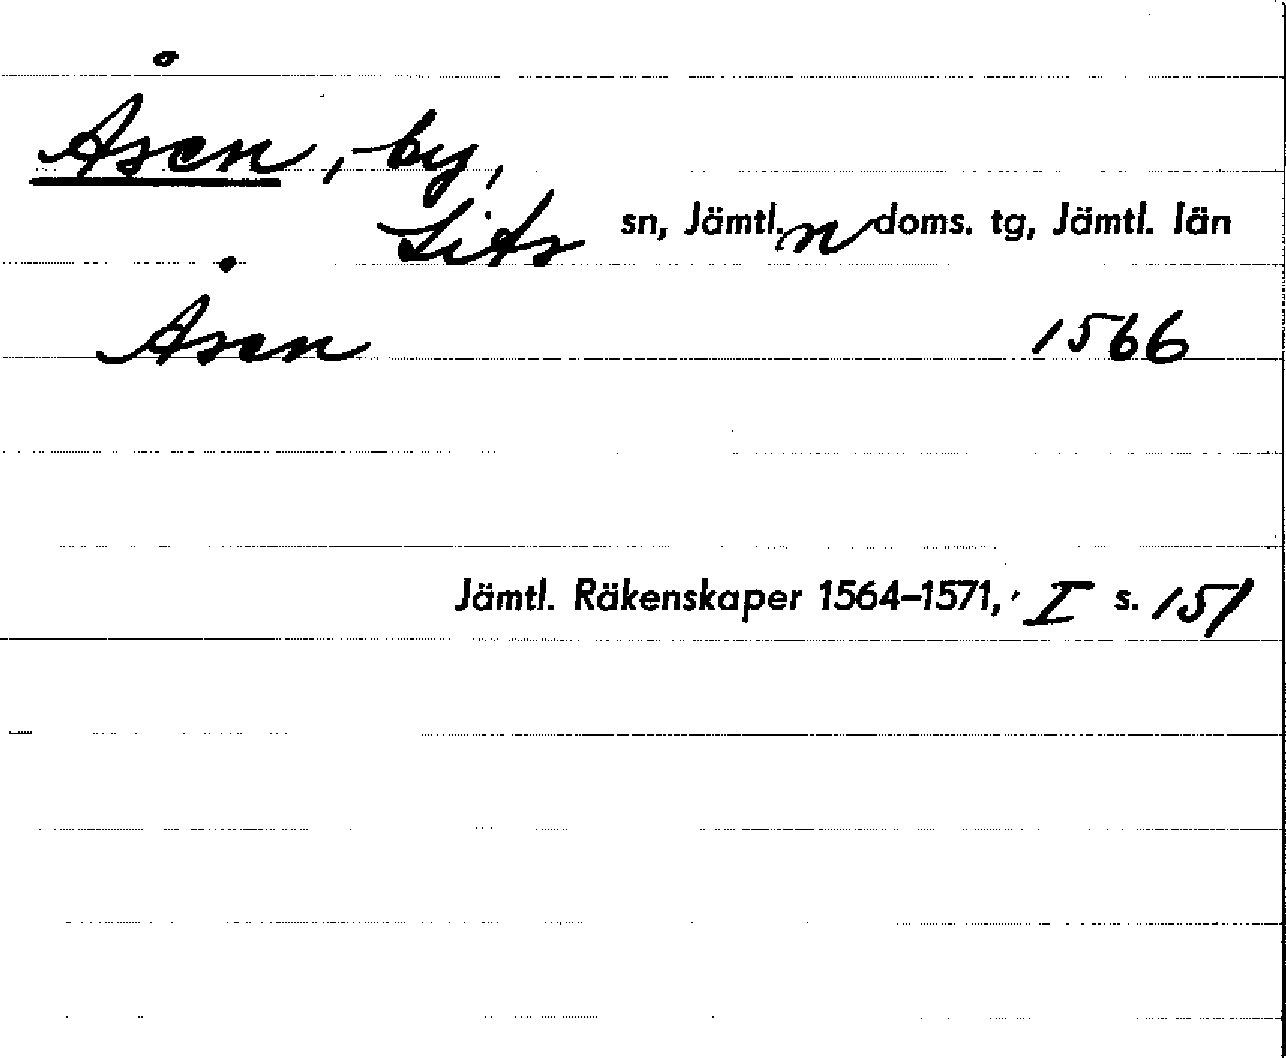 Åsen, by,
Lits sn, Jämtl. n doms. tg, Jämtl. län
Åsen 1566
Jämtl. Räkenskaper 1564–1571, I s. 151